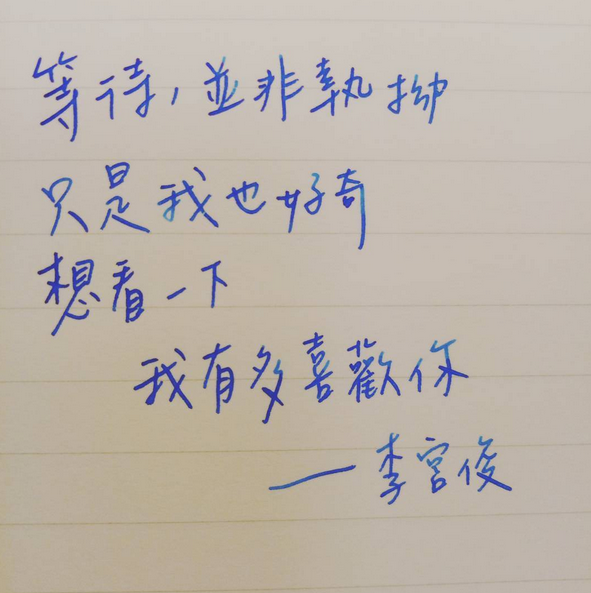 等待，並非執拗
只是我也好奇
想看一下
我有多喜歡你
——李宮俊